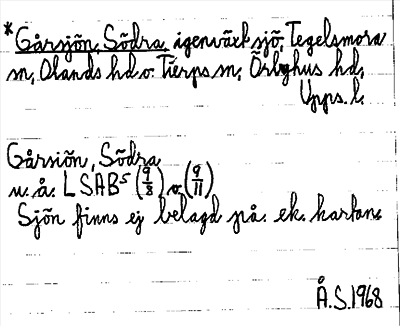 *Gårsjön, Södra, igenväxt sjö, Tegelsmora
sn, Olands hd o. Tierps sn, Örbyhus hd,
Upps. l.
Gårsjön, Södra
u. å. LSAB5 (9/8) o. (9/11)
Sjön finns ej belagd på ek. kartan.
Å.S. 1968